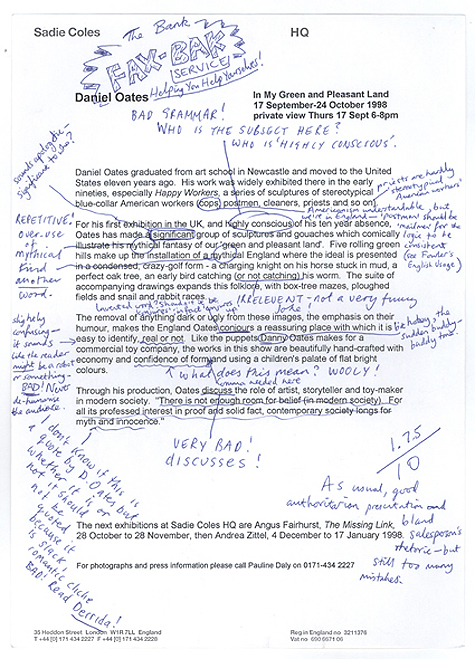 Sadie Coles
HQ
The Bank
FAX-BAK
SERVICE
Helping You Help Yourselves!
Daniel Oates
In My Green and Pleasant Land
17 September-24 October 1998
private view Thurs 17 Sept 6-8pm
BAD GRAMMAR!
WHO IS THE SUBJECT HERE?
WHO IS 'HIGHLY CONSCIOUS'.
sounds apologetic -
Daniel Oates graduated from art school in Newcastle and moved to the
United States eleven years ago. His work was widely exhibited there in the early
nineties, especially Happy Workers, a series of sculptures of stereotypical
blue-collar American workers (cops, postmen, cleaners, priests and so on).
priests are hardly
stereotypical
American workers
Americanism understandable, but
we're in england - 'postmen' should be
'mailmen' for the
piece to be
consistent
(see Fowler's
English Usage)
For his first exhibition in the UK, and highly conscious of his ten year absence,
Oates has made a significant group of sculptures and gouaches which comically
illustrate his mythical fantasy of our 'green and pleasant land'. Five rolling green
hills make up the installation of a mythical England where the ideal is presented
in a condensed, crazy-golf form - a charging knight on his horse stuck in mud, a
perfect oak tree, an early bird catching (or not catching) his worm. The suite of
accompanying drawings expand this folklore, with box-tree mazes, ploughed
fields and snail and rabbit races.
REPETITIVE!
over-use
of
mythical
find
another
word.
IRRELEVENT - not a very funny
joke!
The removal of anything dark or ugly from these images, the emphasis on their
humour, makes the England Oates conours a reassuring place with which it is
easy to identify, real or not. Like the puppets Danny Oates makes for a
commercial toy company, the works in this show are beautifully hand-crafted with
economy and confidence of form and using a children's palate of flat bright
colours.
slightly
confusing -
it sounds
like the reader
might be a robot
or something -
BAD! Never
de-humanise
the audience.
what does this mean? WOOLY!
comma needed here
Through his production, Oates discuss the role of artist, storyteller and toy-maker
in modern society. "There is not enough room for belief (in modern society). For
all its professed interest in proof and solid fact, contemporary society longs for
myth and innocence."
VERY BAD!
discusses!
I don't know if this is
a quote by D. Oates but
whether it is or
not it should
not be
quoted
because it
is slack
romantic cliche
BAD! Read
Derrida!
1.75
10
As usual, good
authoritarian presentation and
bland
salesperson's
rhetoric - but
still too many
mistakes.
The next exhibitions at Sadie Coles HQ are Angus Fairhurst, The Missing Link,
28 October to 28 November, then Andrea Zittel, 4 December to 17 January 1998.
For photographs and press information please call Pauline Daly on 0171-434 2227
35 Heddon Street London W1R 7LL England
T +44 [0] 171 434 2227 F +44 [0] 171 434 2228
Reg in England no 3211376
Vat no 690 6671 06